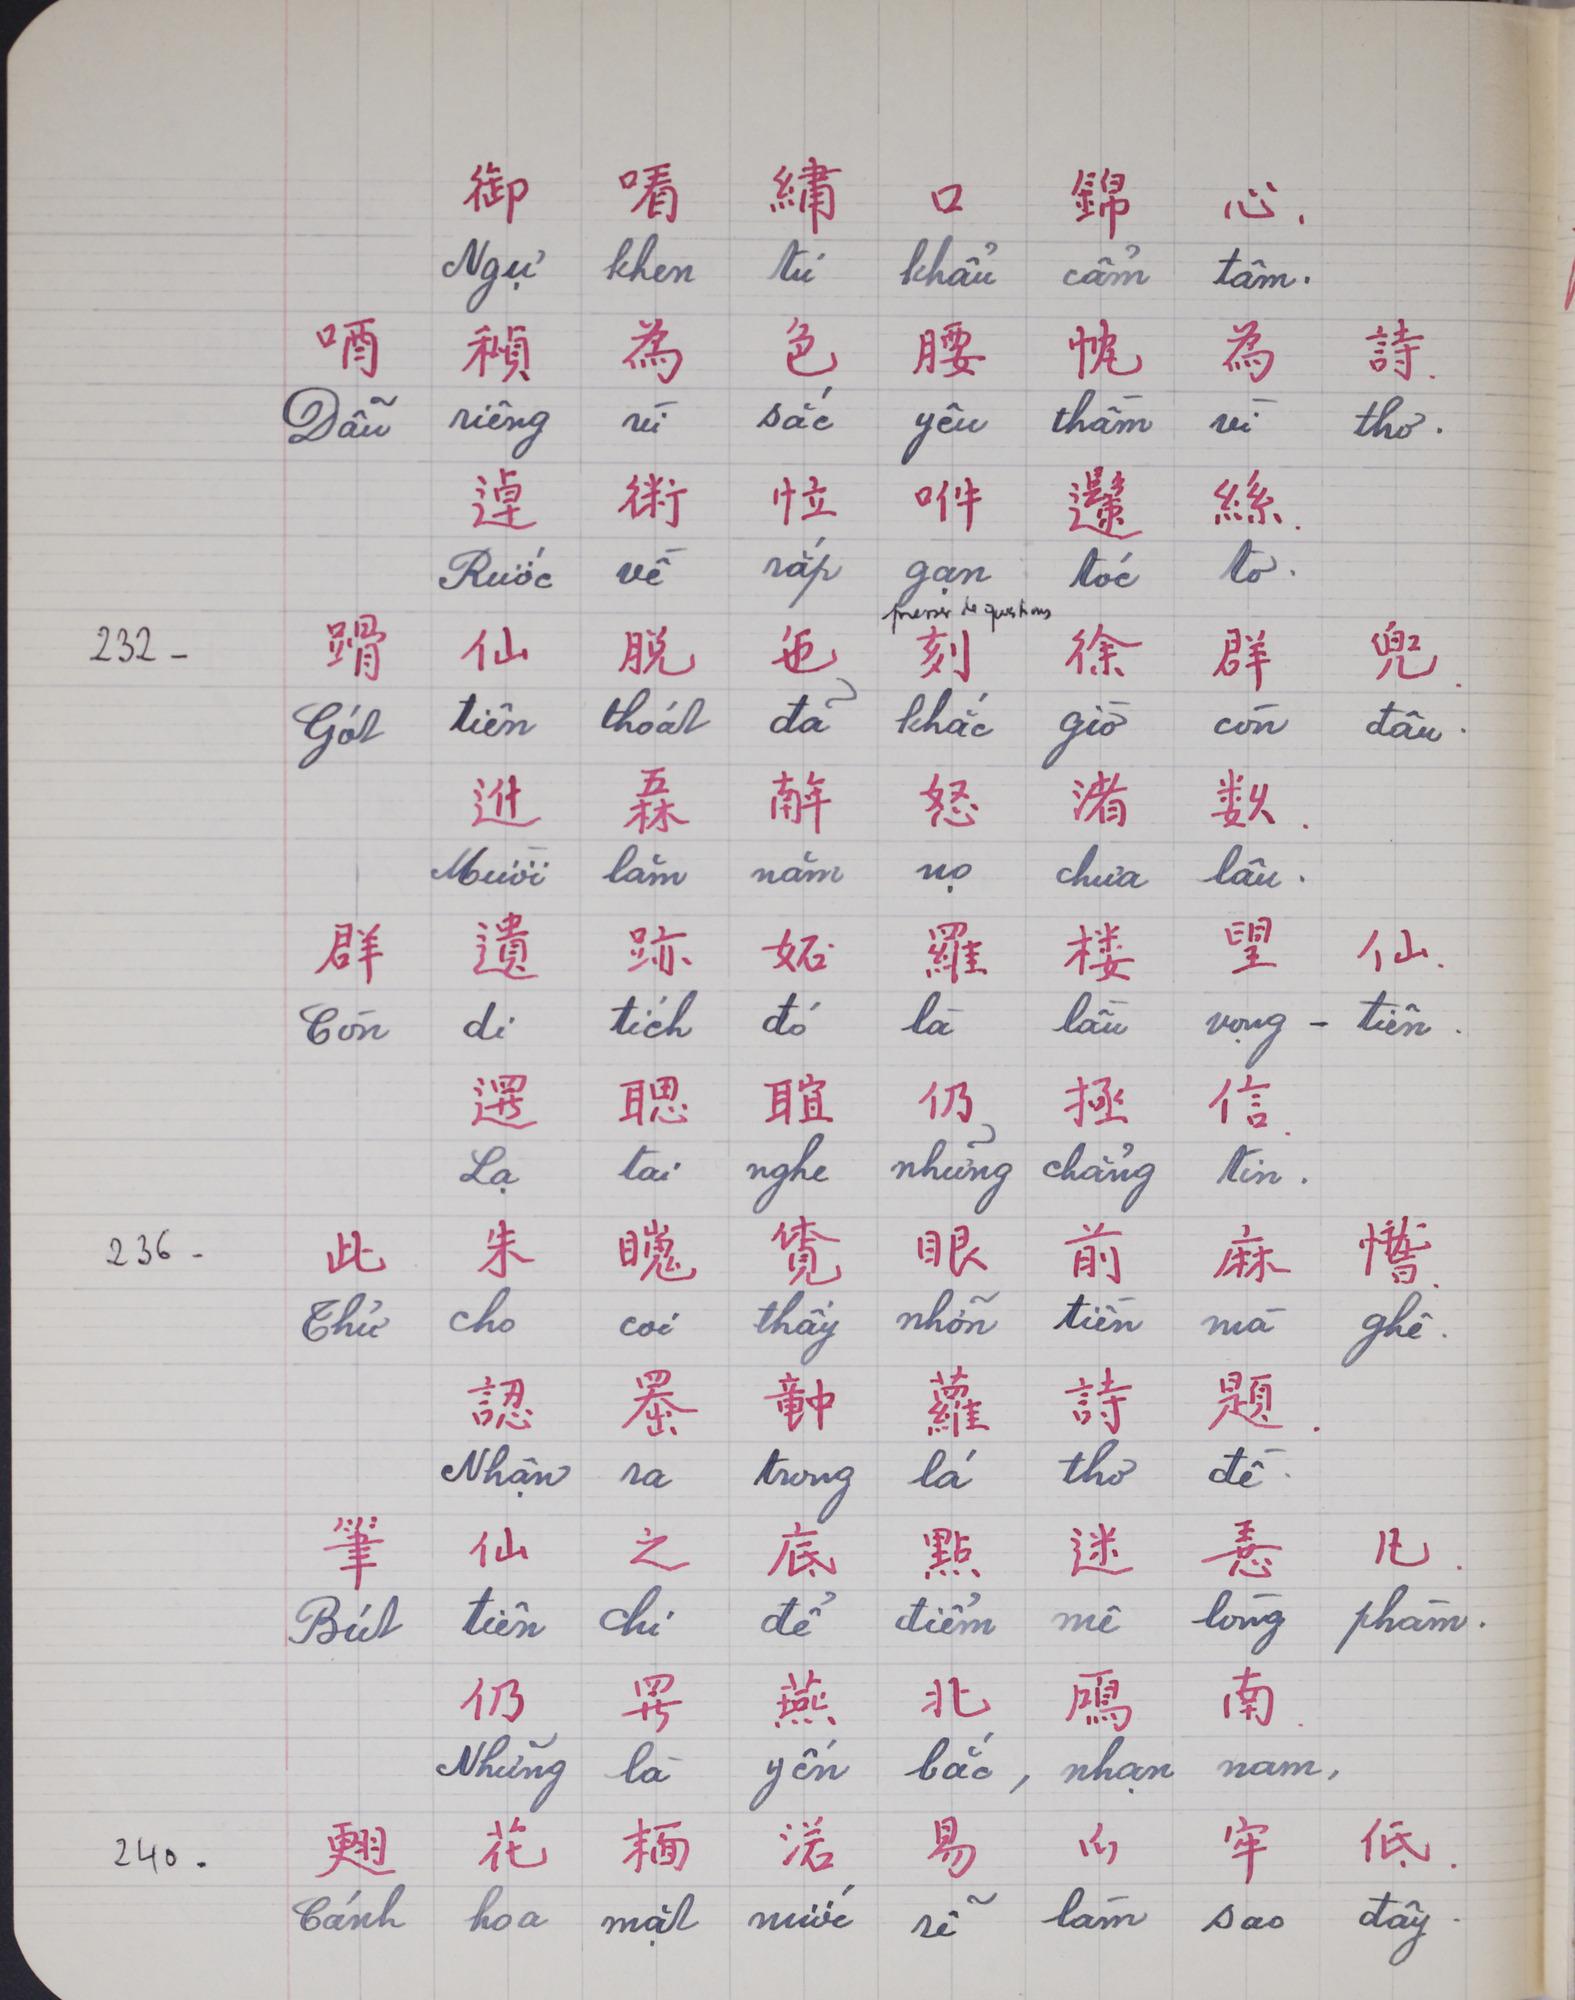 御 𠸦 繡 口 錦 心.
Ngự khen tú khẩu cẩm tâm.
唒 穎 為 色 腰 忱 為 詩.
Dẫu riêng vì sắc yêu thầm vì thơ.
逴 術 㤔 吘 絲.
Rước về ráp gạn tóc tơ.
presser de questions
232 - 仙 脱 㐌 刻 徐 群 兜.
Gót tiên thoát đả khắc giờ còn đâu.
𨑮 𠄻 𢆥 怒 渚 数.
Mười lăm năm nọ chưa lâu.
群 遺 跡 妬 羅 楼 望 仙.
Còn di tích đó là lầu vọng - tiên.
𦖻 𦖑 仍 拯 信.
Lạ tai nghe nhửng chẳng tin.
236 - 此 朱 𥊖 覓 眼 前 麻.
Thử cho coi thấy nhỡn tiền mà ghê.
認 𠚢 𥪝 蘿 詩 題.
Nhận ra trong lá thơ đề.
筆 仙 之 底 點 迷 𢚸 凡.
Bút tiên chi để điểm mê lòng phàm.
仍 𱺵 燕 北 鴈 南.
Những là yến bắc, nhạn nam,
240. 花 𩈘 渃 易 𪜀 牢 低.
Cánh hoa mặt nước rễ làm sao đây.